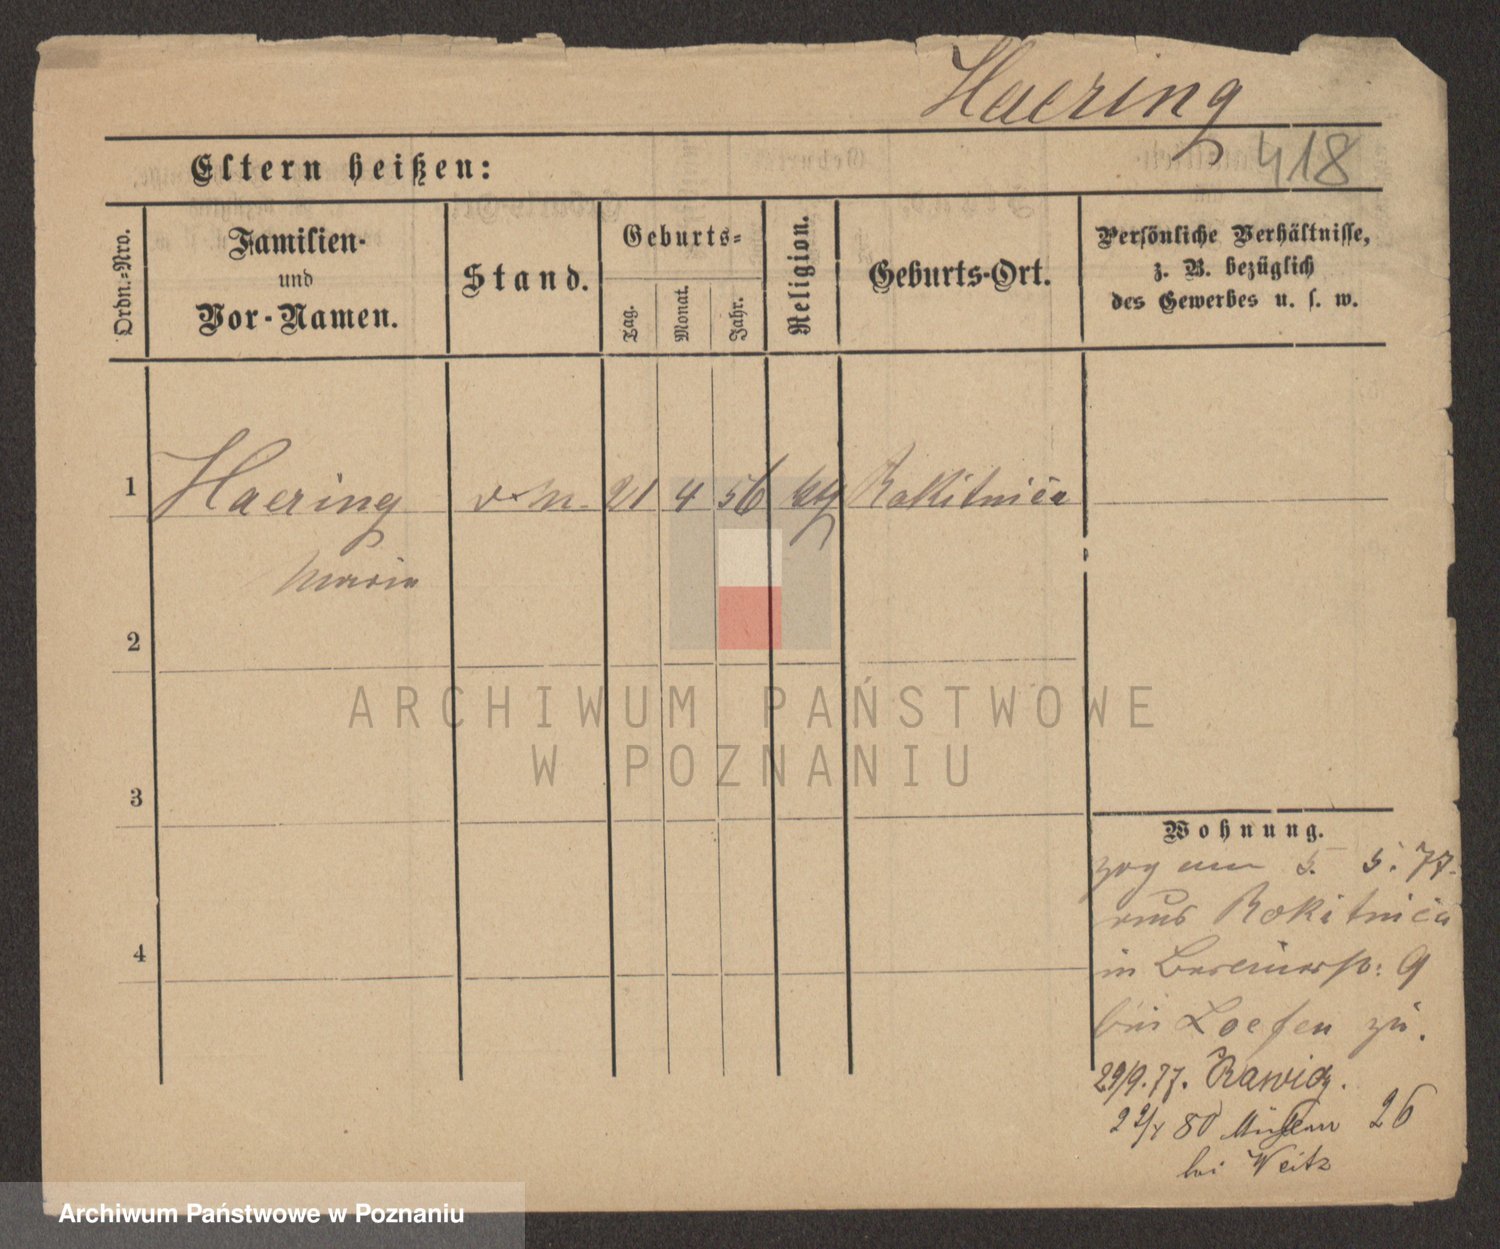 Haering
418
Eltern heißen:
Ordn.-Nro.
Familien-
und
Vor-Namen.
Stand.
Geburts-
Tag.
Monat.
Jahr.
Religion.
Geburts-Ort.
Persönliche Verhältnisse,
z. B. bezüglich
des Gewerbes u. s. w.
1 Haering 21 4 56 Rokitnica
Maria
2
3
4
ARCHIWUM PAŃSTWOWE
W POZNANIU
Wohnung.
zog am 5. 5. 77.
aus Rokitnica
in 9
bei Loefen zu.
29/9. 77. Rawicz.
80 26
bei Weitz
Archiwum Państwowe w Poznaniu